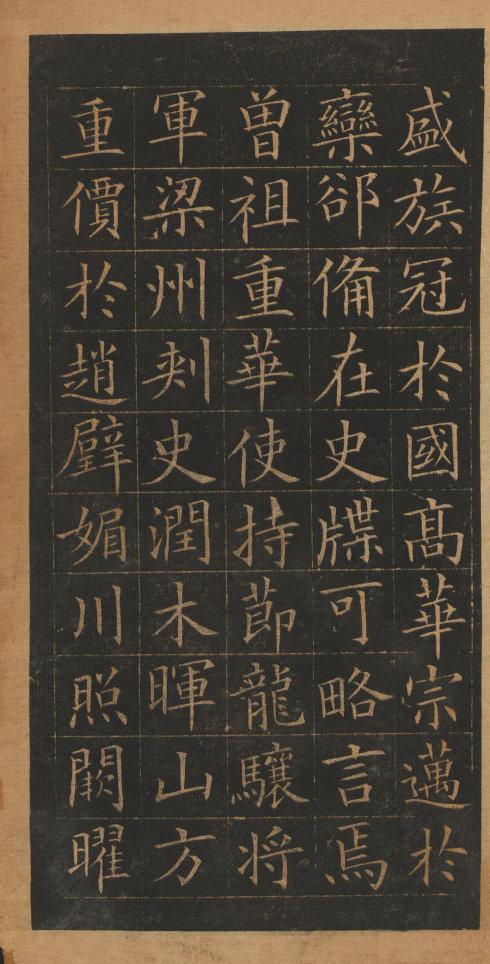 盛族冠於國髙華宗邁於
欒郤備在史牒可略言焉
曽祖重華使持節龍驤将
軍梁州刾史潤木暉山方
重價於趙璧媚川照闕曜